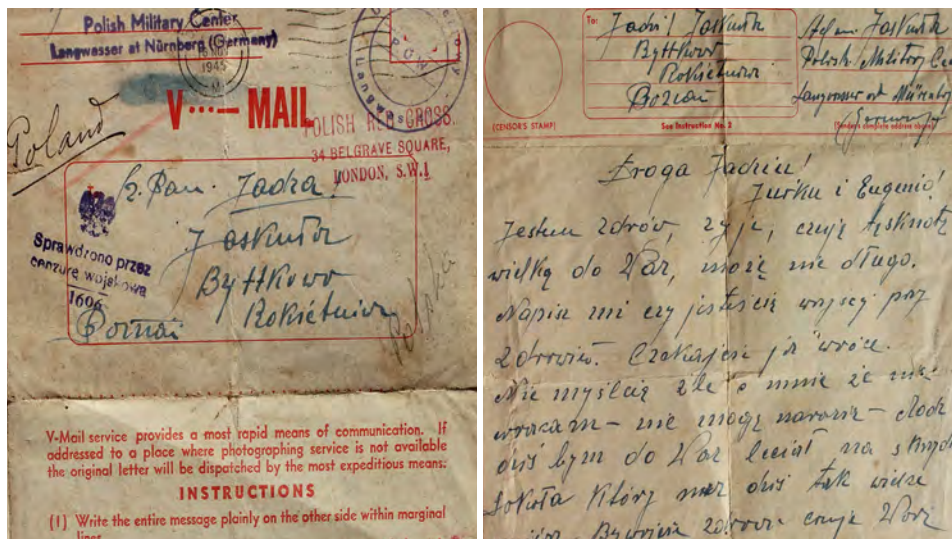 Polish Military Center
Langwasser at Nürnberg (Germany)
1945
V···— MAIL
Poland
POLISH RED CROSS.
34 BELGRAVE SQUARE,
LONDON, S.W.1
Sz. Pan. Jadza!
Jaskuła
Byttkowo
Rokietnica
Poznań
Sprawdzono przez
cenzurę wojskową
1606
Polska
V-Mail service provides a most rapid means of communication. If
addressed to a place where photographing service is not available
the original letter will be dispatched by the most expeditious means.
INSTRUCTIONS
(1) Write the entire message plainly on the other side within marginal
lines
To:
Jadzi! Jaskuła
Byttkowo
Rokietnica
Poznań
Jaskuła
Polish Military Cen
Langwasser at Nürnberg
Germany
(CENSOR'S STAMP)
See Instruction No. 2
(Sender's complete address above)
Droga Jadziu!
Jurku i Eugenio!
Jestem zdrów, żyję, czuję tęsknotę
wielką do Was, może nie długo.
Napisz mi czy jesteście wszyscy przy
zdrowiu. Czekajcie ja wrócę.
Nie myślcie źle o mnie że nie
wracam - nie mogę narazie -
dziś bym do Was leciał na skrzydł
Sokoła który nas dziś tak wielce
Bywajcie zdrowi